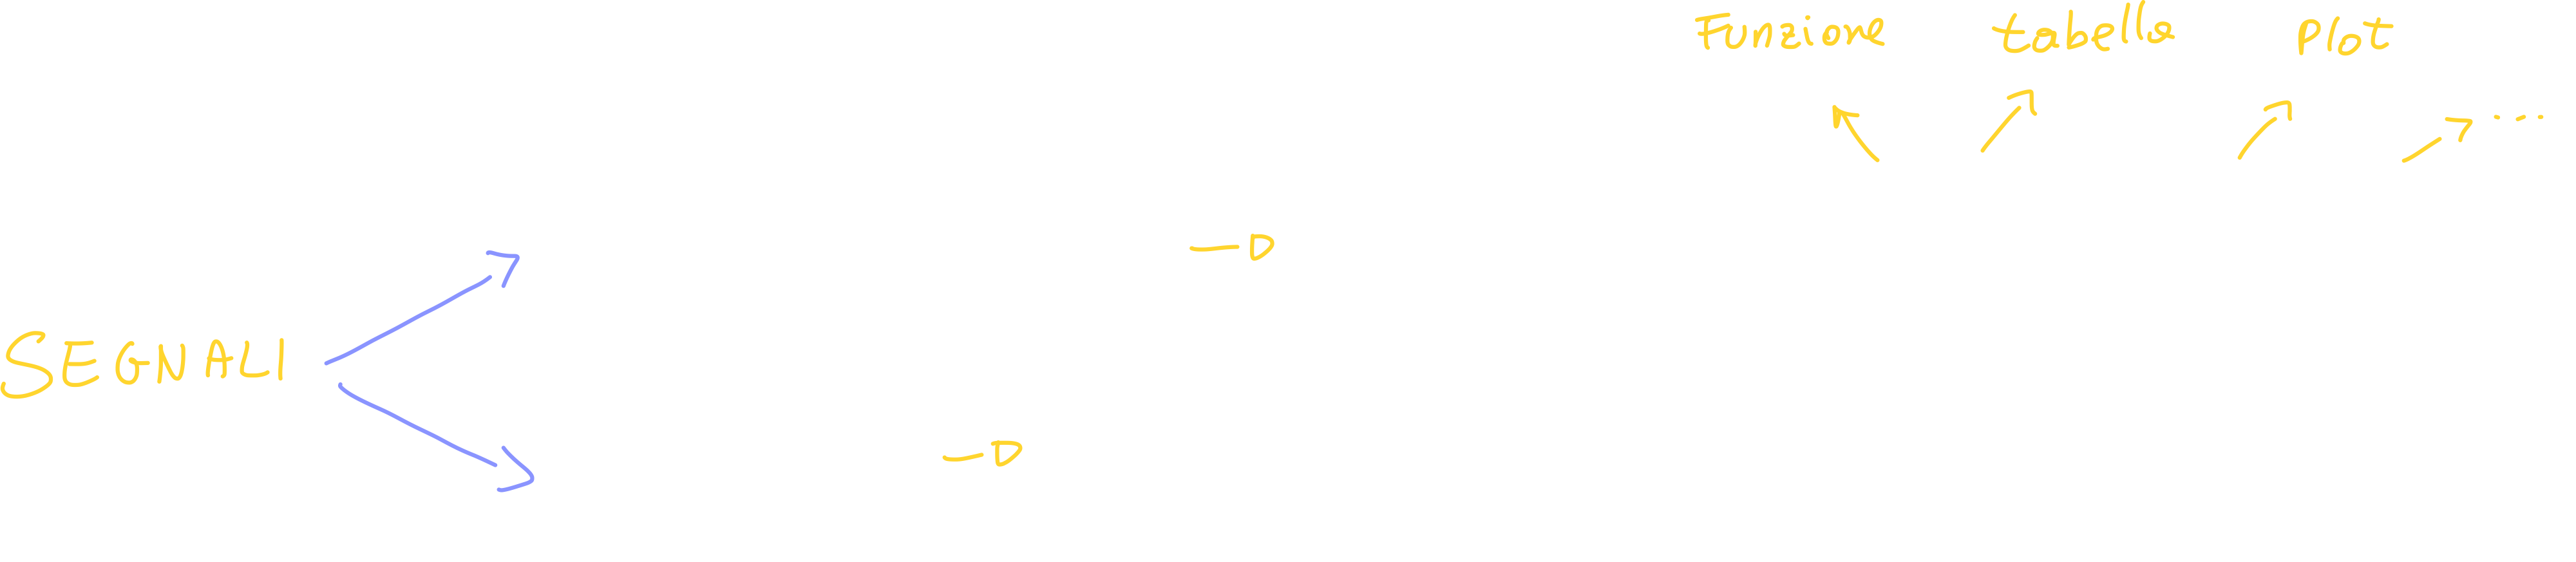 Funzione tabella Plot
...
SEGNALI